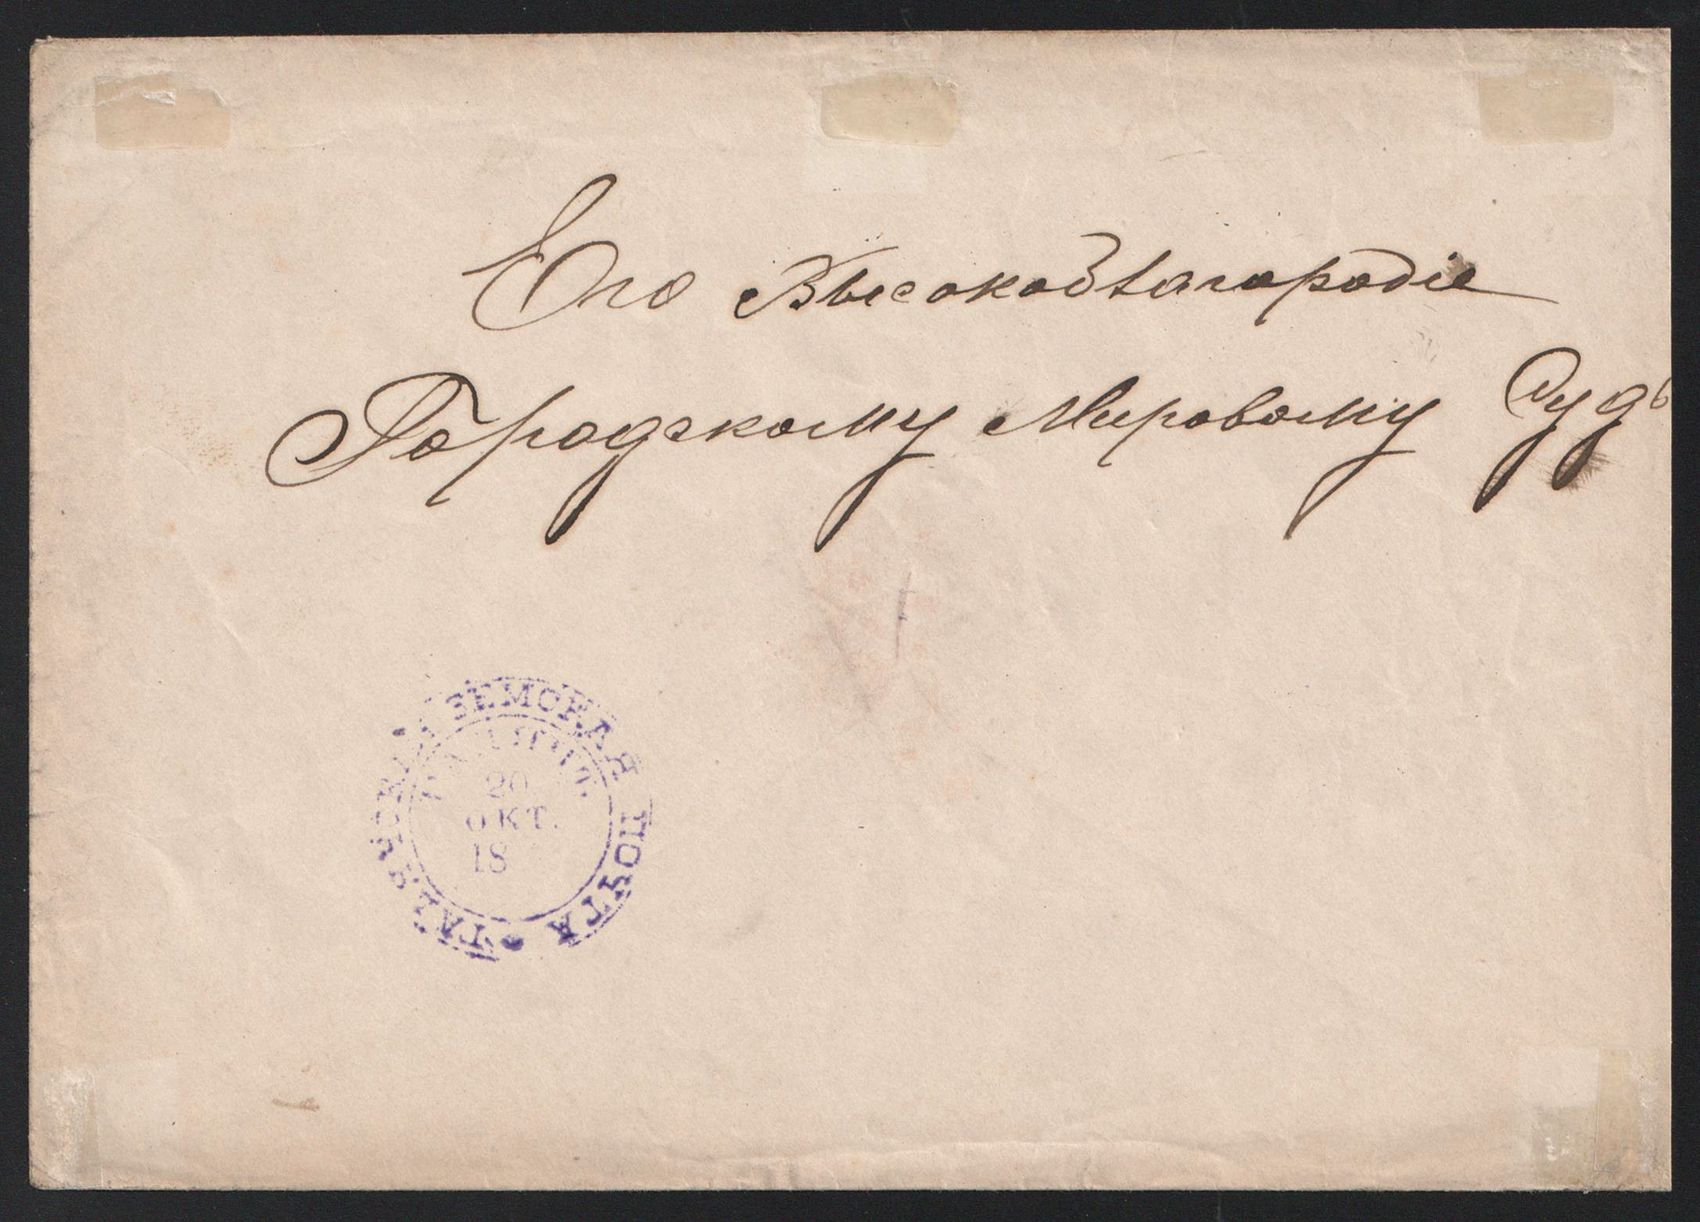 Его Высокоблагородіе
Городскому Мировому Судь
ГАДЯЧСКАЯ ЗЕМСКАЯ ПОЧТА
20
ОКТ.
18